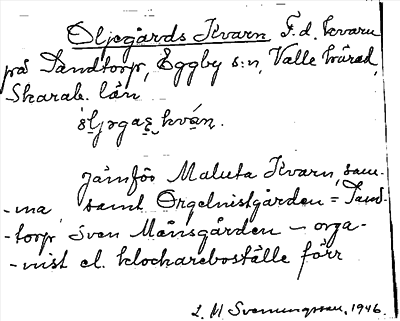 Oljegårds Kvarn F.d. kvarn
på Sandtorp, Eggby s:n, Valle härad,
Skarab. län
jämför Maluta Kvarn, sam-
-ma, samt Orgelnistgården = Sand-
-torp Sven Månsgården - orga-
-nist el. klockareboställe förr
L. M Svenungsson, 1946.